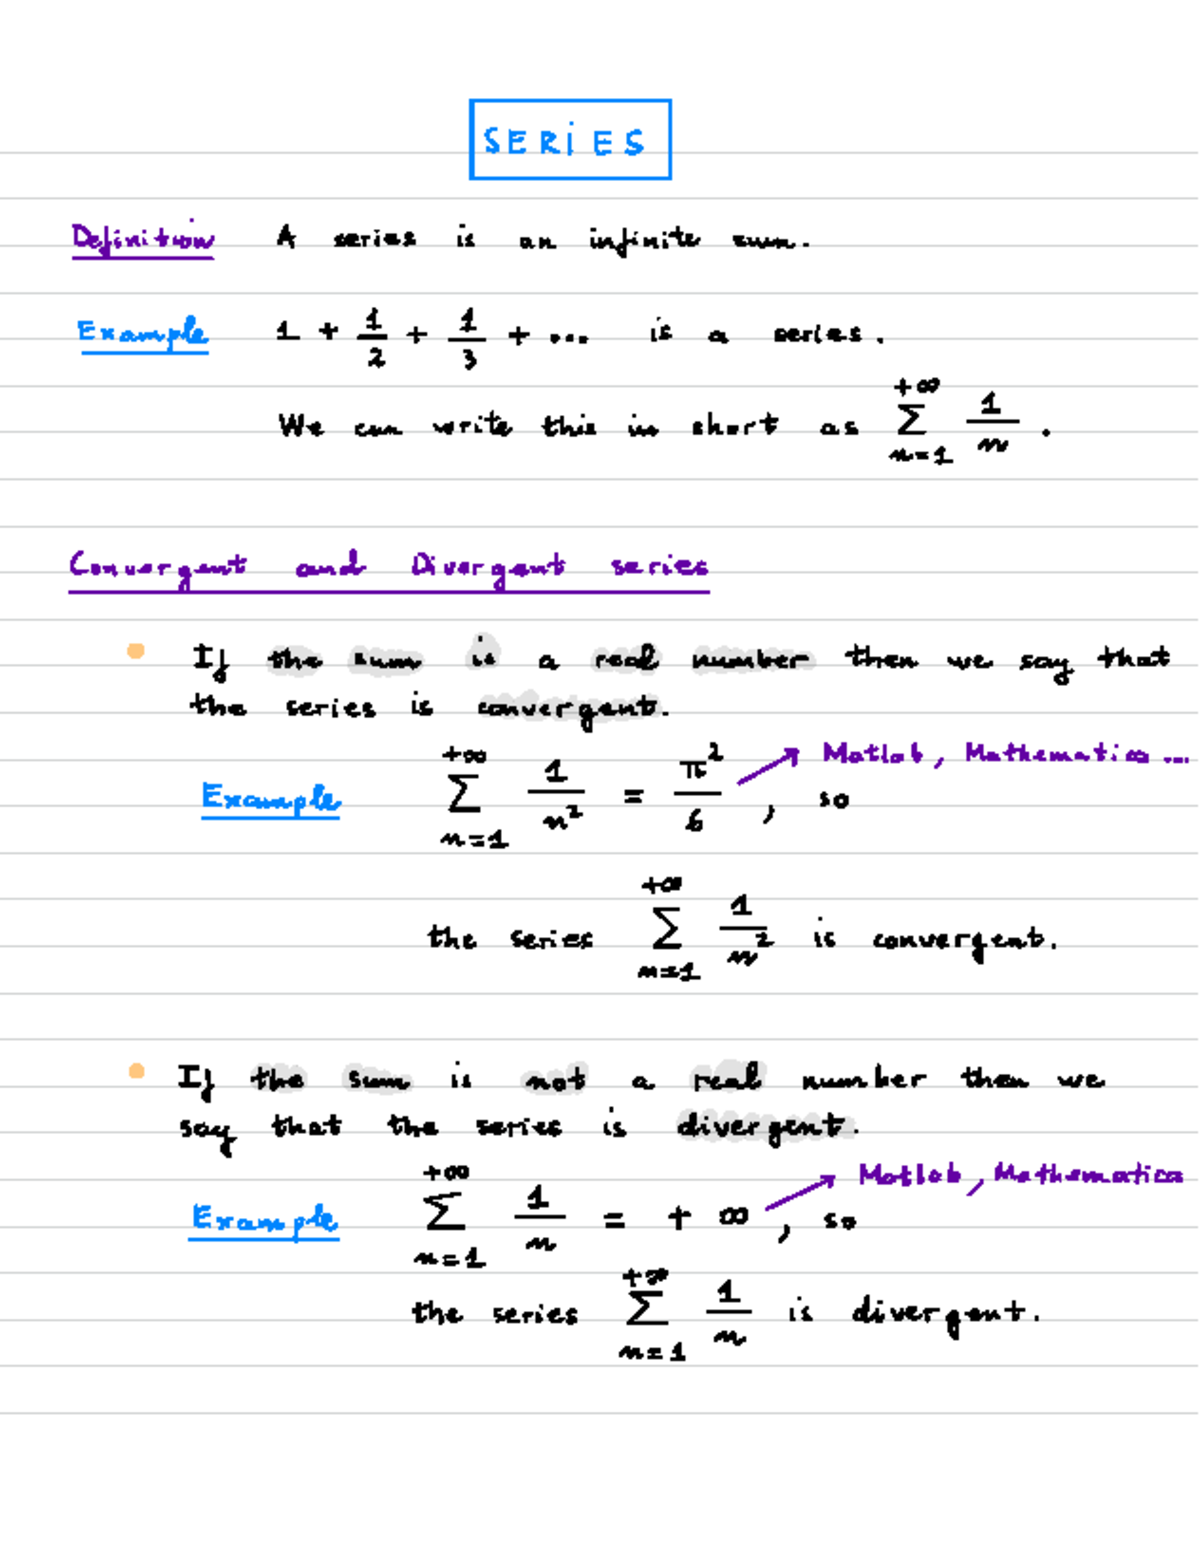 SERiES
Definition A series is an infinite sum.
Example 1 + 1/2 + 1/3 + ... is a series.
We can write this in short as +∞ ∑ n=1 1/n .
Convergent and Divergent series
• If the sum is a real number then we say that
the series is convergent.
Example +∞ ∑ n=1 1/n² = π²/6 , so → Matlab, Mathematica ...
the series +∞ ∑ n=1 1/n² is convergent.
• If the sum is not a real number then we
say that the series is divergent.
Example +∞ ∑ n=1 1/n = + ∞ , so → Matlab, Mathematica
the series +∞ ∑ n=1 1/n is divergent.